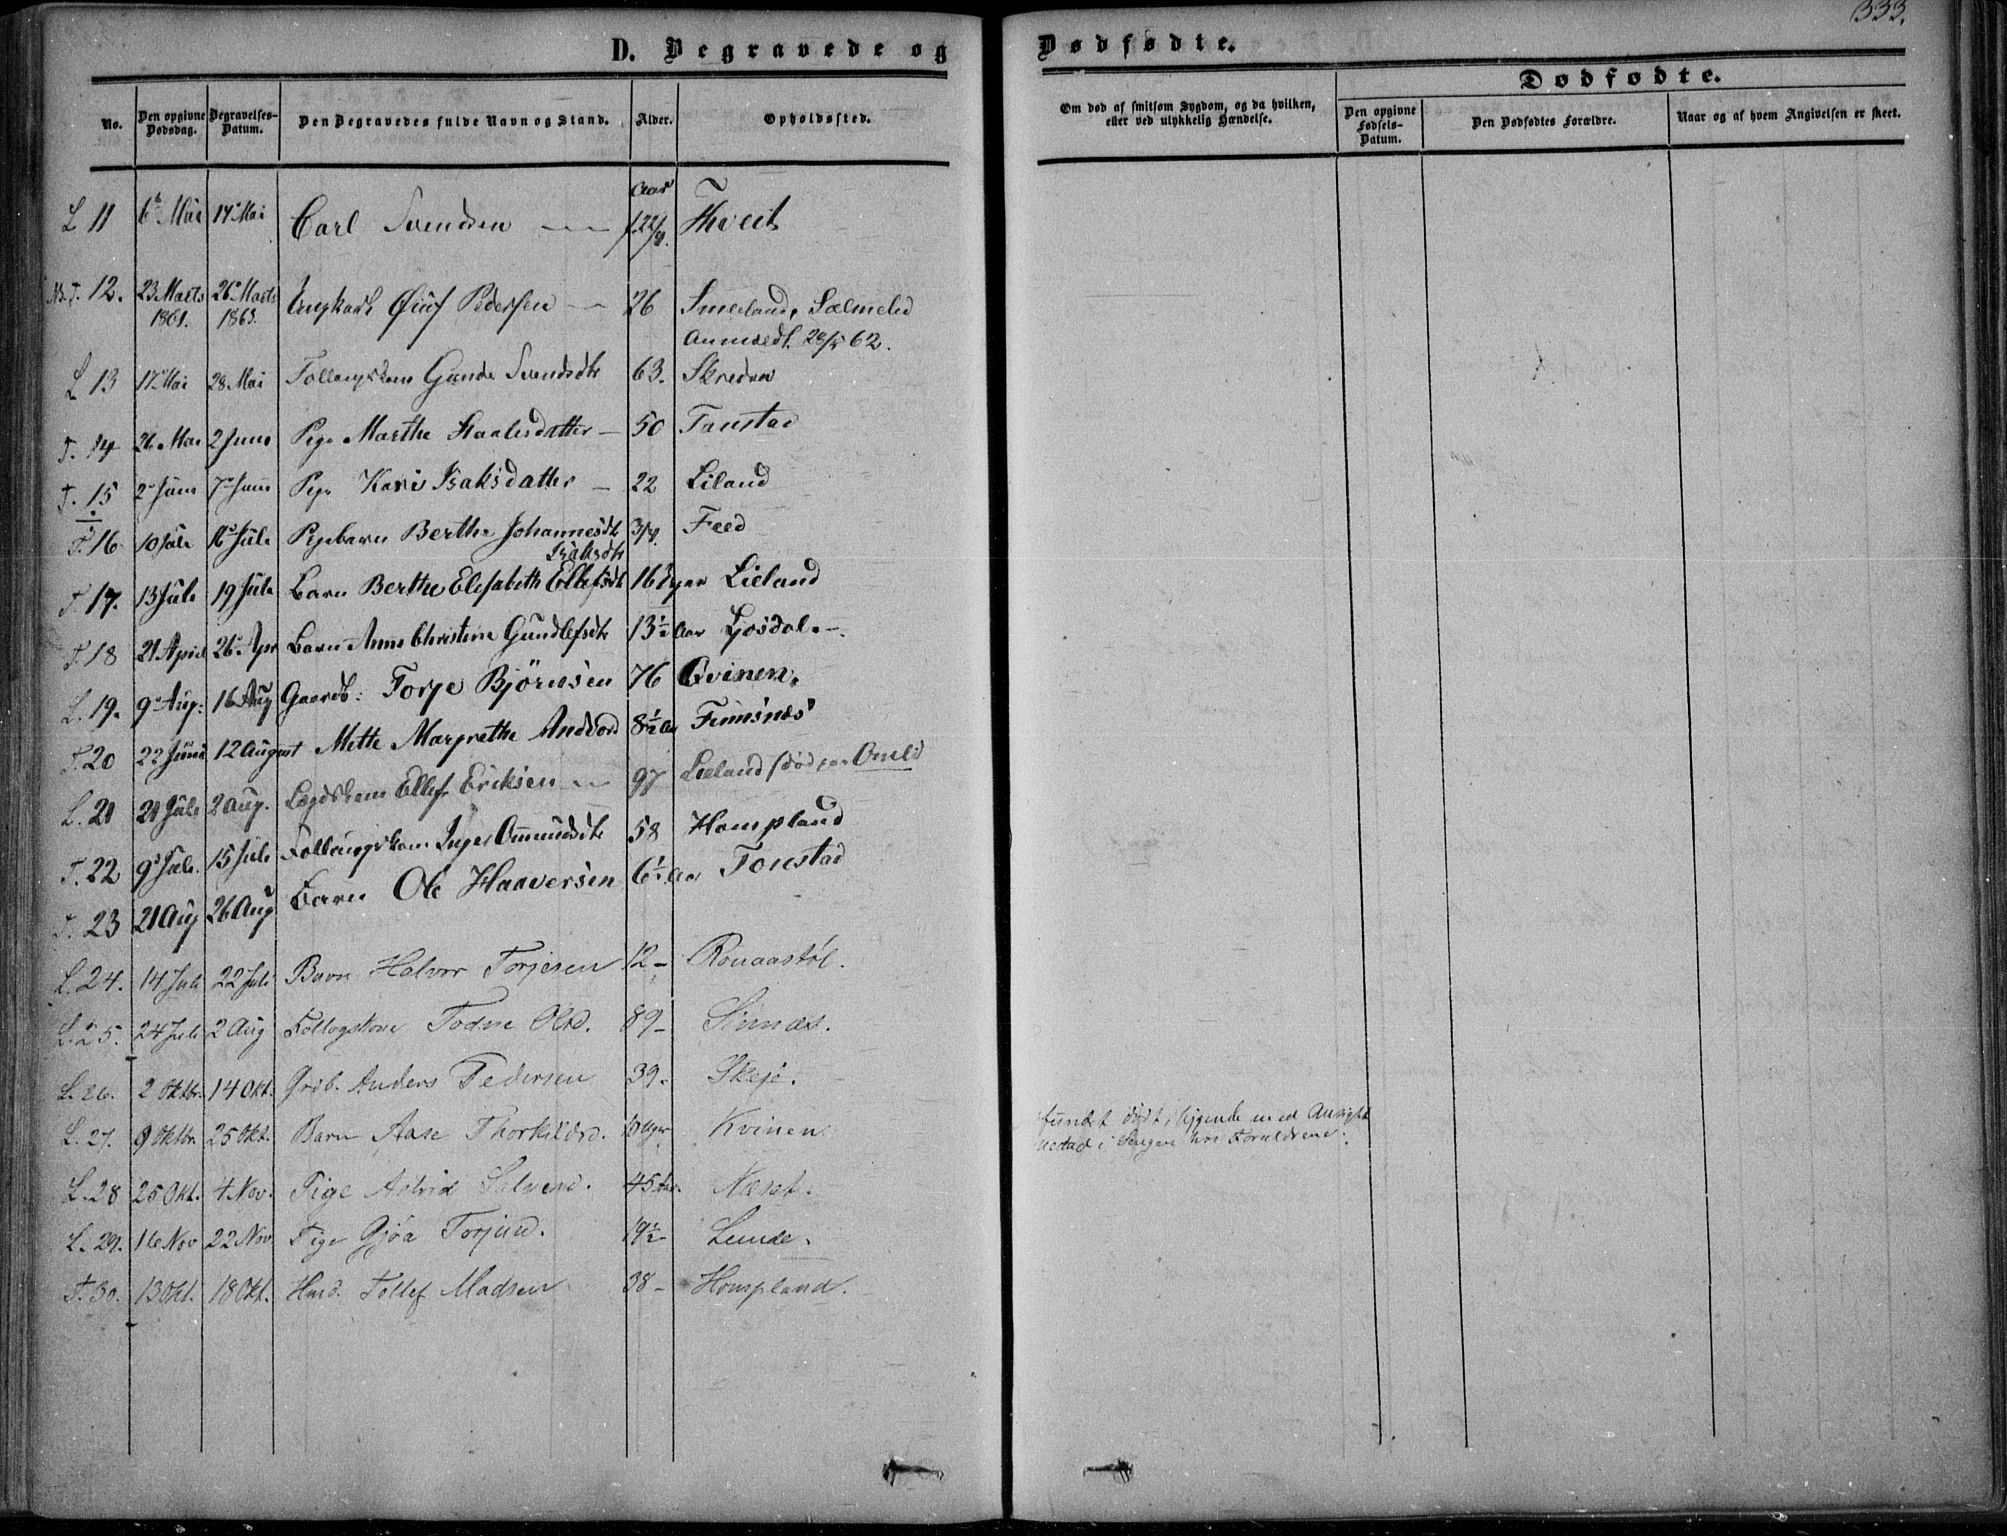 333.
D. Begravede og Dødfødte.
Dødfødte.
No. Den opgivne Dødsdag. Begravelses-Datum. Den Begravedes fulde Navn og Stand. Alder. Opholdssted. Om død af smitsom Sygdom, og da hvilken, eller ved ulykkelig Hændelse. Den opgivne Fødsels-Datum. Den Dødfødtes Forældre. Naar og af hvem Angivelsen er skeet.
Aar
L 11 6 Mai 17 Mai Carl Svendsen Tveit
T. 12. 23 Marts 1861. 26 Marts 1863. Ungkarl Pedersen 26 Smeland,
Anmeldt 62.
L 13 17 Mai 28 Mai Gunda Svendsdtr 63. Skreden
T. 14 26 Mai 2 Juni Pige Marthe Staalesdatter 50 Tonstad
T. 15 2 Juni 7 Juni Pige Kari Isaksdatter 22 Liland
T. 16 10 Juli 16 Juli Pigebarn Berthe Johannesdt 3/4 Feed
Isaksdt
T. 17. 13 Juli 19 Juli Barn Berthe Elisabeth Ellefsdt 16 Uger Lieland
T. 18 21 April 26 Apr Barn Anne Christine Gundlefsdt 13½ Aar Josdal.
L. 19. 9 Aug: 16 Aug Gaardb: Torje Bjørnsen 76 Qvinen.
T. 20 22 Juni 12 August Mette Margrethe 8½ Aar Finsnæs
L. 21 21 Juli 2 Aug. Lægdslem Ellef Eriksen 97 Lieland (død paa Omlid
T. 22 9 Juli 15 Juli Inger Omundsdt 58 Hompland
T. 23 21 Aug 26 Aug Barn Ole Haaversen 6½ Aar Tonstad
L. 24. 14 Juli 22 Juli Barn Halvor Torjesen 12 - Ronaastøl.
L. 25. 24 Juli 2 Aug Todne Olsd. 89 - Sinnæs.
L. 26. 2 Oktbr. 14 Okt. Grdb. Anders Pedersen 39. Skeje.
L. 27. 9 Oktbr. 25 Okt. Barn Aase Thorkildsd. Uger Kvinen fundet dødt, liggende med Ansigtet
nedad i Sengen hos Forældrene.
L. 28 25 Okt. 4 Nov. Pige Astrid 45 Aar. Næset.
L. 29. 16 Nov 22 Nov. Pige Gjøa Torjusd. 19½ - Lunde.
T. 30. 13 Okt. 18 Okt. Husd. Tollef Madsen 38 - Hompland.